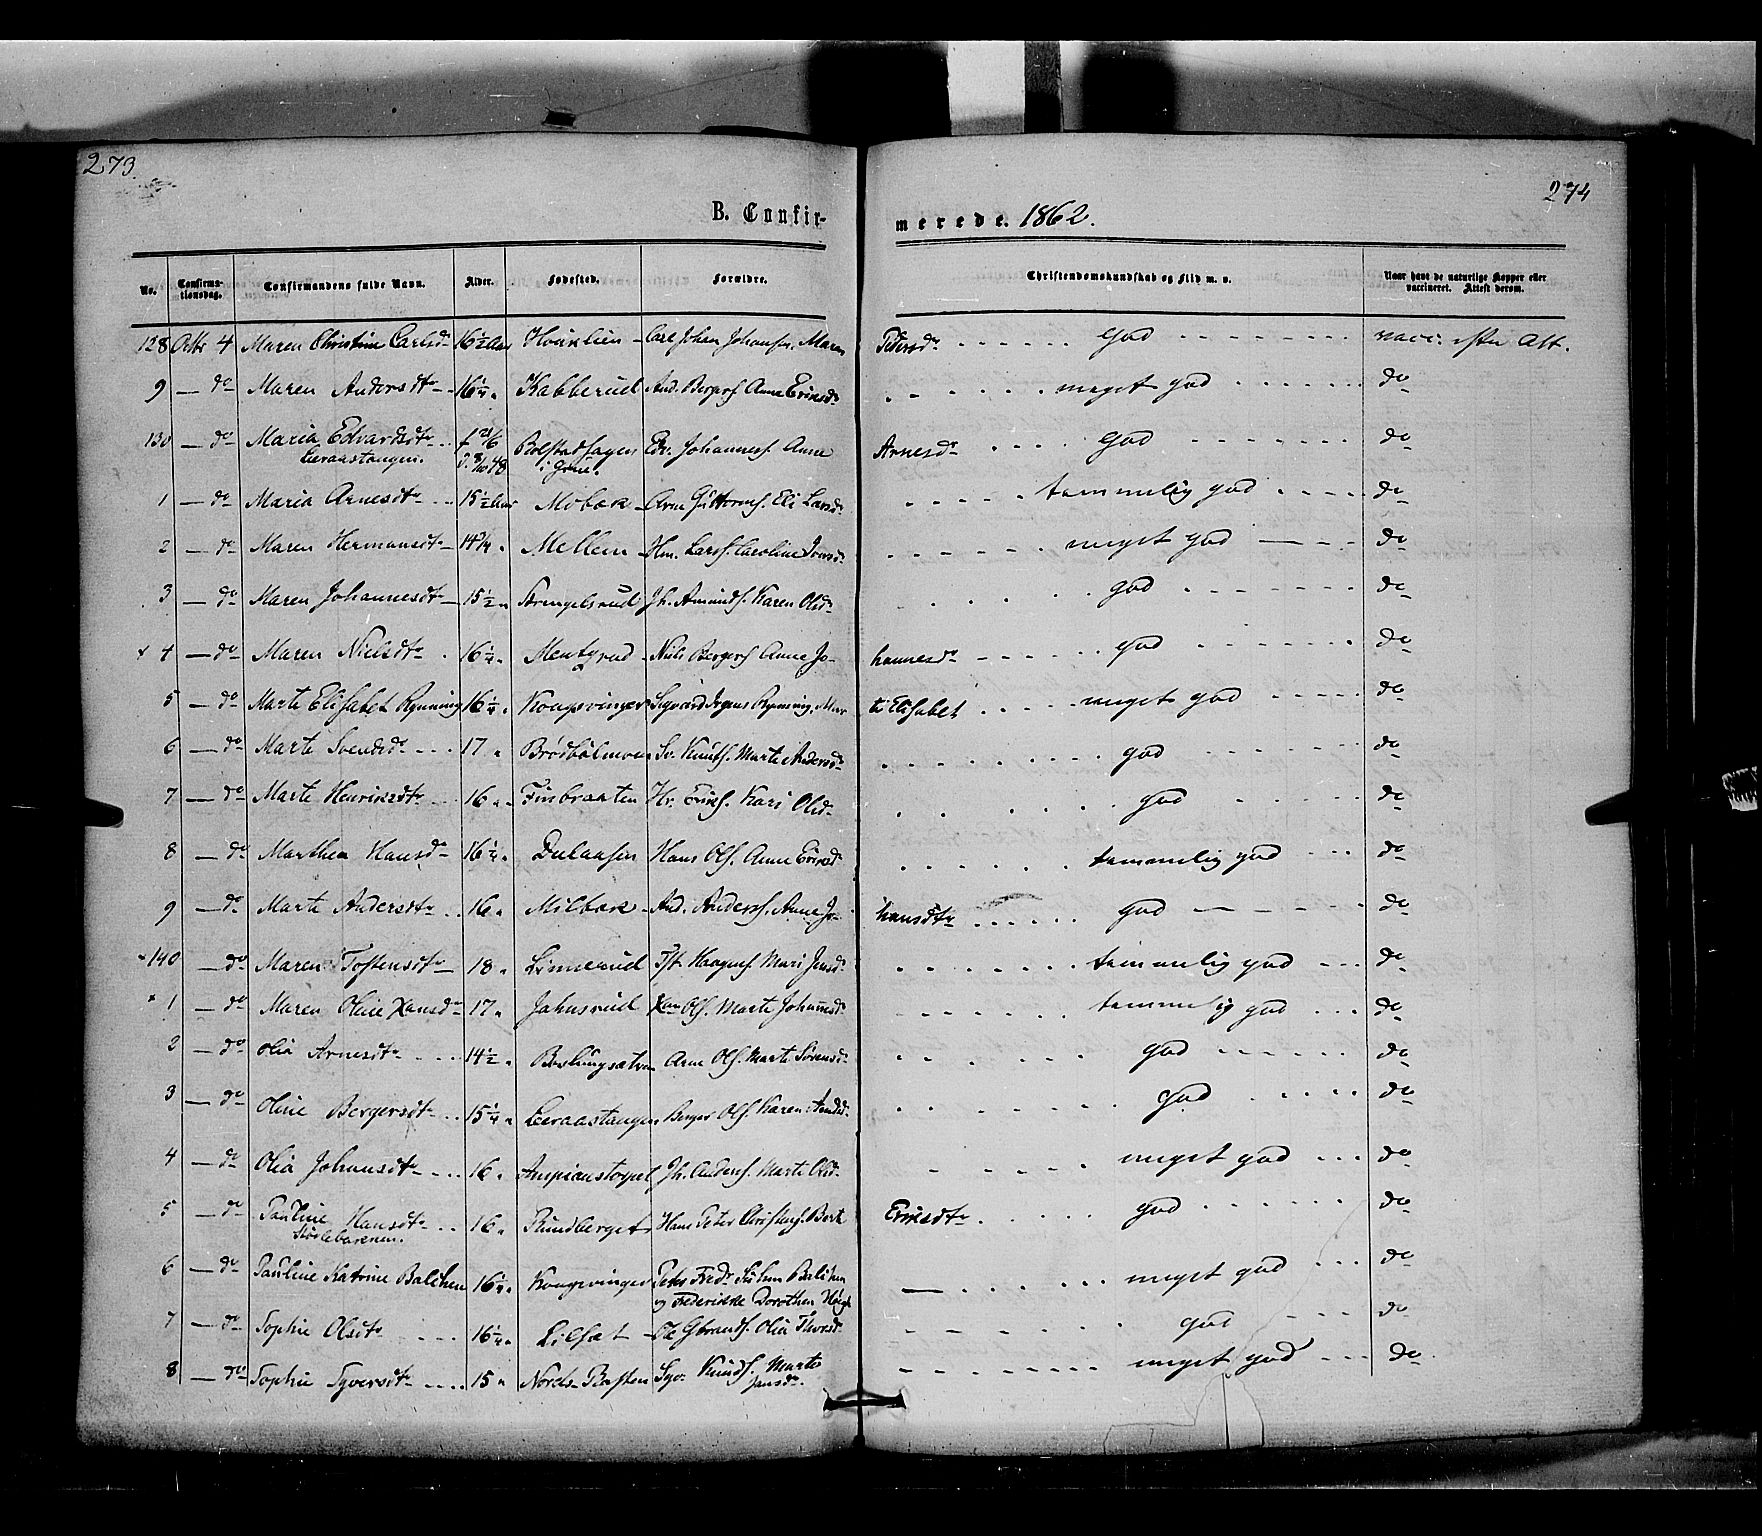 273.
274
B. Confir-
merede. 1862.
No. Confirma-tionsdag. Confirmandens fulde Navn. Alder. Fødested. Forældre. Christendomskundskab og Flid m. v. Naar havt de naturlige Kopper eller vaccineret. Attest derom.
128 Octbr 4 Maren Christine Carlsd. 16 1/2 Aar Carl Johan Johansen, Maren Pedersdr god vacc. efter Att.
9 — do Maren Andersdtr 16 1/4 " Kabberud And. Bergers. Anne Eriksdr meget god do
130 — do Maria Edvardsdtr Bolstadhagen Edv. Johanness. Anne Arnesdr god do
Leeraastangen. i Grue.
1 — do Maria Arnesdtr 15 1/2 Aar Mobæk Arne Guttorms. Eli Larsdr temmelig god do
2 — do Maren Hermansdtr 14 3/4 " Mellem Hm. Larss. Caroline Iversdr meget god do
3 — do Maren Johannesdtr 15 1/2 " Strengelsrud Jh. Amunds. Karen Olsdr god do
4 — do Maren Nielsdtr 16 1/4 " Niels Bergers. Anne Johannesdr god do
5 — do Marte Elisabet Rynning 16 1/4 " Kongsvinger Rynning, Marte Elisabet meget god do
6 — do Marte Svendsdr 17 " Brødbølmoen Sv. Knuts. Marte Andersdr god do
7 — do Marte Henriksdtr 16 " Finbraaten Hr. Eriks. Kari Olsd. god do
8 — do Marthea Hansdr 16 1/4 " Hans Ols. Anne Eriksd temmelig god do
9 — do Marte Andersdtr 16 " Milbæk And. Anderss. Anne Johansdtr god do
140 — do Maren Tostensdtr 18 " Linnerud Tst. Haagens. Mari Jensd. temmelig god do
1 — do Maren Oline Hansdr 17 " Jahnsrud Han Ols. Marte Johannesdr temmelig god do
2 — do Olia Arnesdtr 14 1/2 " Arne Ols. Marte Sörensd. god do
3 — do Oline Bergersdtr 15 1/4 " Leeraastangen Berger Ols. Karen god do
4 — do Olia Johansdtr 16 " Jh. Anderss. Marte Olsd. meget god do
5 — do Pauline Hansdtr 16 " Rundberget Hans Peter Christens. Berte Eriksdtr god do
6 — do Pauline Katrine Balchen 16 1/4 " Kongsvinger Peter Fredr Suhm Balchen meget god do
og Frederikke Dorothea Høegh
7 — do Sophie Olsdtr 16 1/4 " Lilsæt Ole Gbrands. Olia Thoresd. god do
8 — do Sophie Syversdtr 15 " Nordr Rasten Syv. Knuds. Marte Jansdr. meget god do